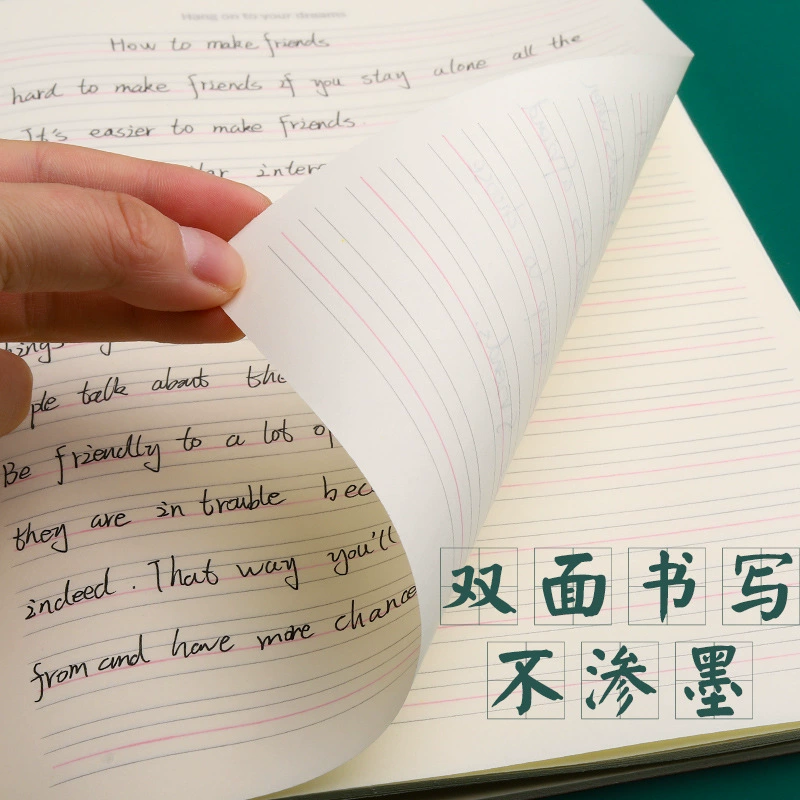 Hang on to your dreams
How to make friends
hard to make friends if you stay alone all the
It's easier to make friends.
ple talk about the
Be friendly to a lot
they are in trouble bec
indeed. That way you'll
from and have more chance
双面书写
不渗墨